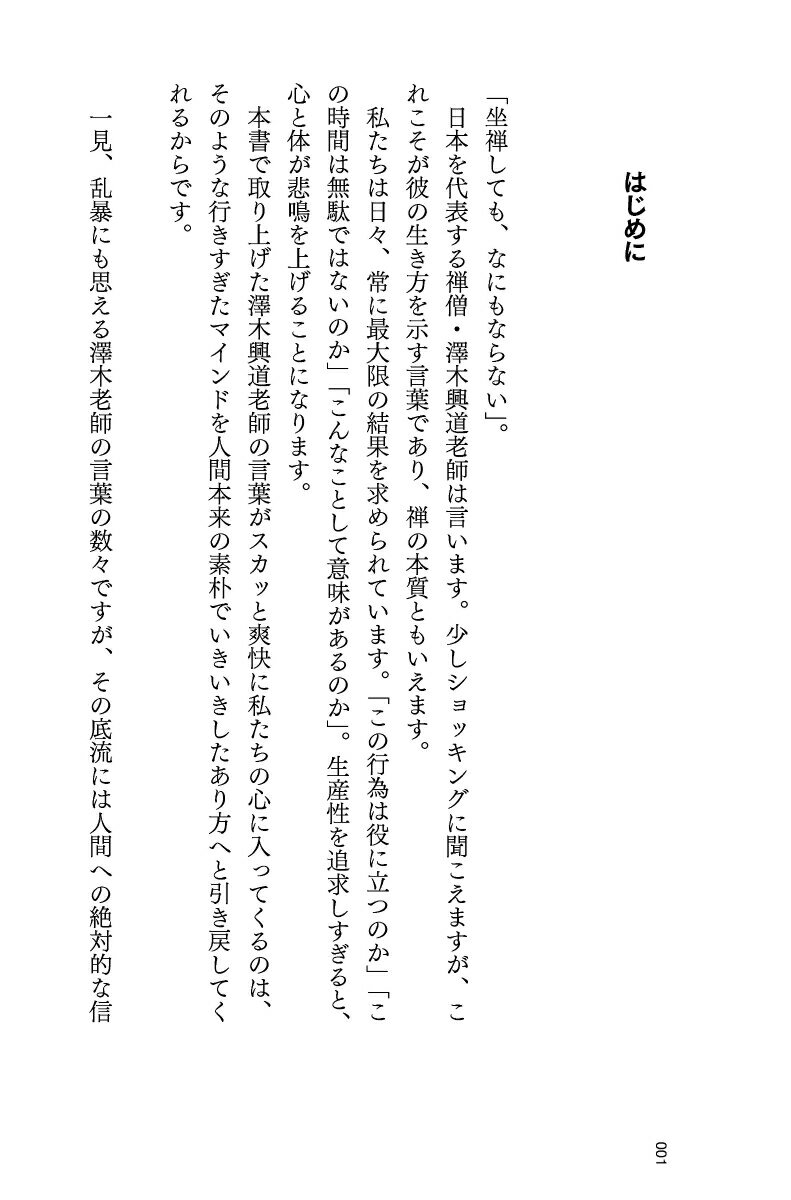 はじめに
「坐禅しても、なにもならない」。
日本を代表する禅僧・澤木興道老師は言います。少しショッキングに聞こえますが、こ
れこそが彼の生き方を示す言葉であり、禅の本質ともいえます。
私たちは日々、常に最大限の結果を求められています。「この行為は役に立つのか」「こ
の時間は無駄ではないのか」「こんなことして意味があるのか」。生産性を追求しすぎると、
心と体が悲鳴を上げることになります。
本書で取り上げた澤木興道老師の言葉がスカッと爽快に私たちの心に入ってくるのは、
そのような行きすぎたマインドを人間本来の素朴でいきいきしたあり方へと引き戻してく
れるからです。
一見、乱暴にも思える澤木老師の言葉の数々ですが、その底流には人間への絶対的な信
001